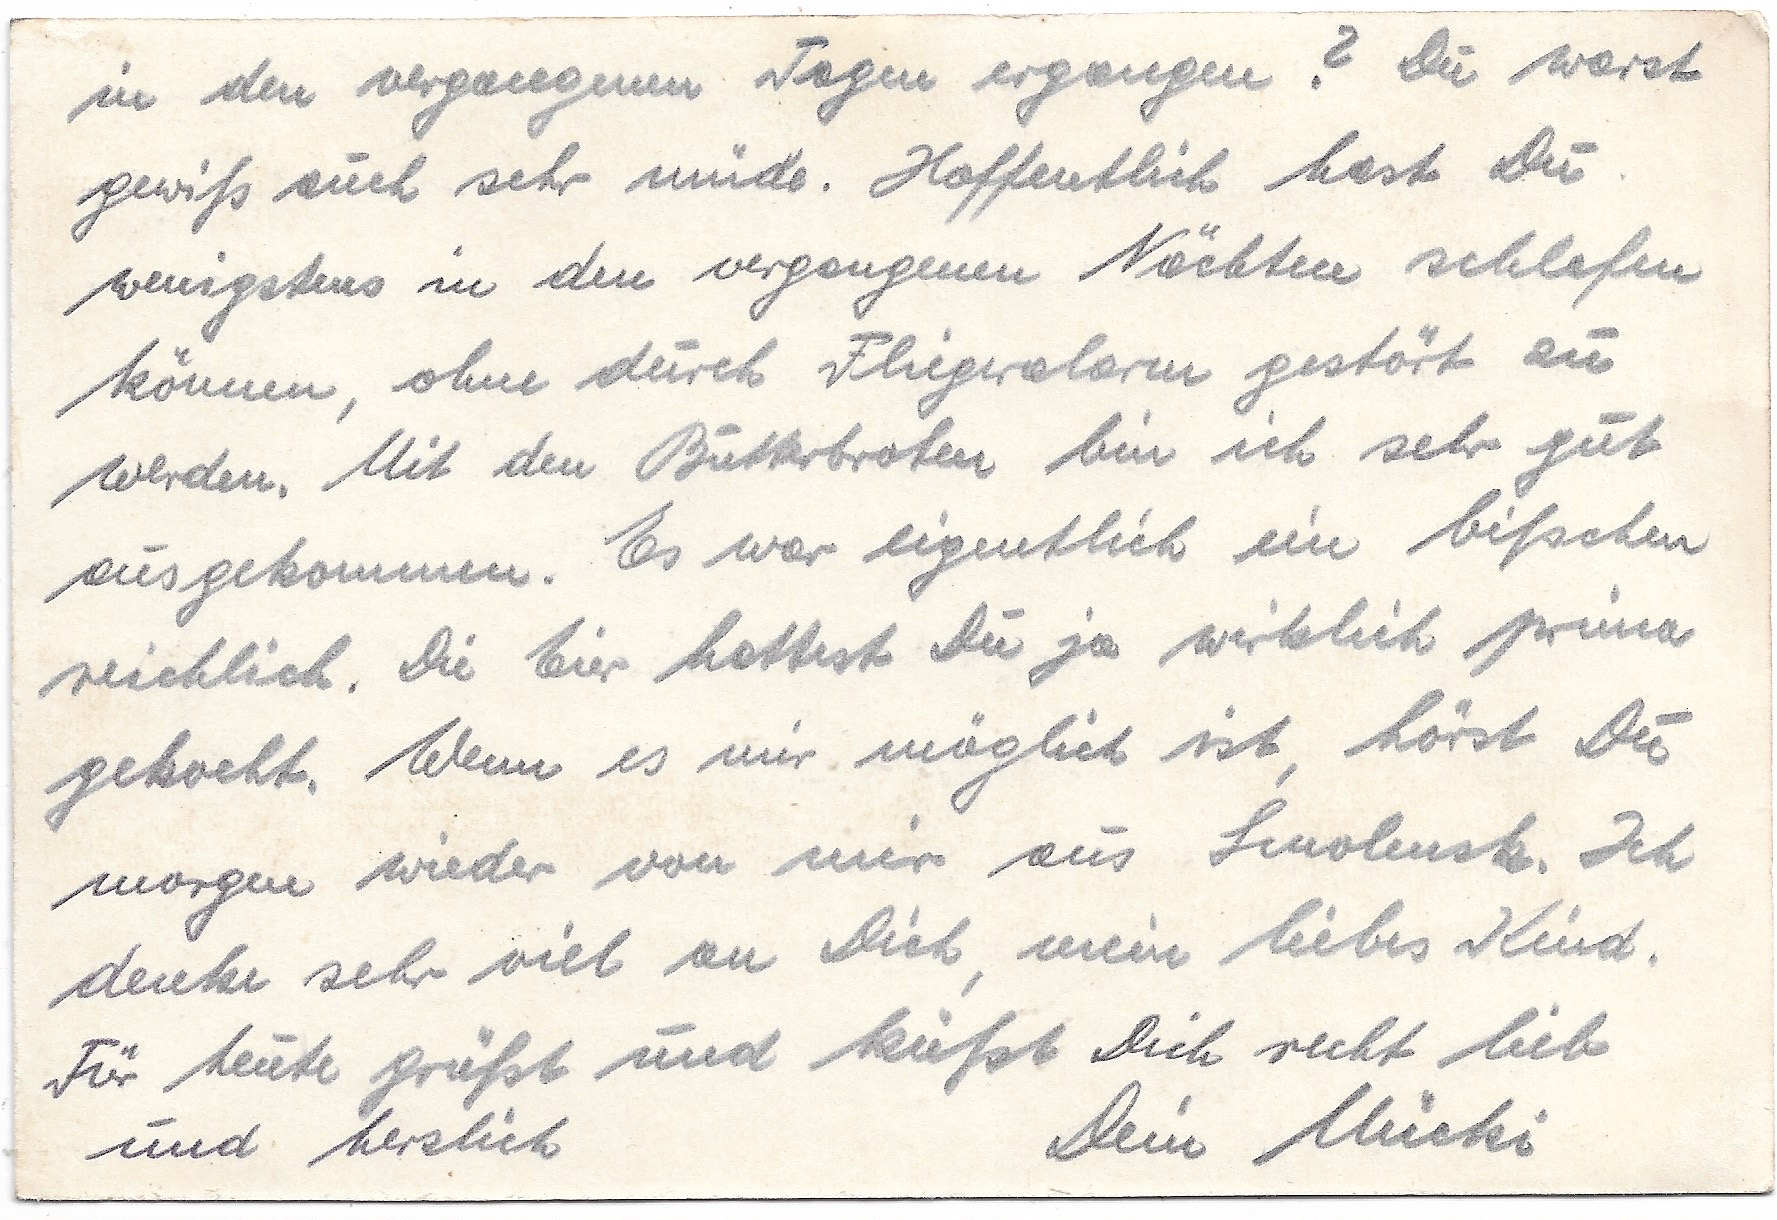 in den vergangenen Tagen ergangen? Du warst
gewiß auch sehr müde. Hoffentlich hast Du
wenigstens in den vergangenen Nächten schlafen
können, ohne durch Fliegeralarm gestört zu
werden. Mit den Butterbroten bin ich sehr gut
ausgekommen. Es war eigentlich ein bißchen
reichlich. Die Eier hattest Du ja wirklich prima
gekocht. Wenn es mir möglich ist, hörst Du
morgen wieder von mir aus Smolensk. Ich
denke sehr viel an Dich, mein liebes Kind.
Für heute grüßt und küßt Dich recht lieb
und herzlich Dein Mucki